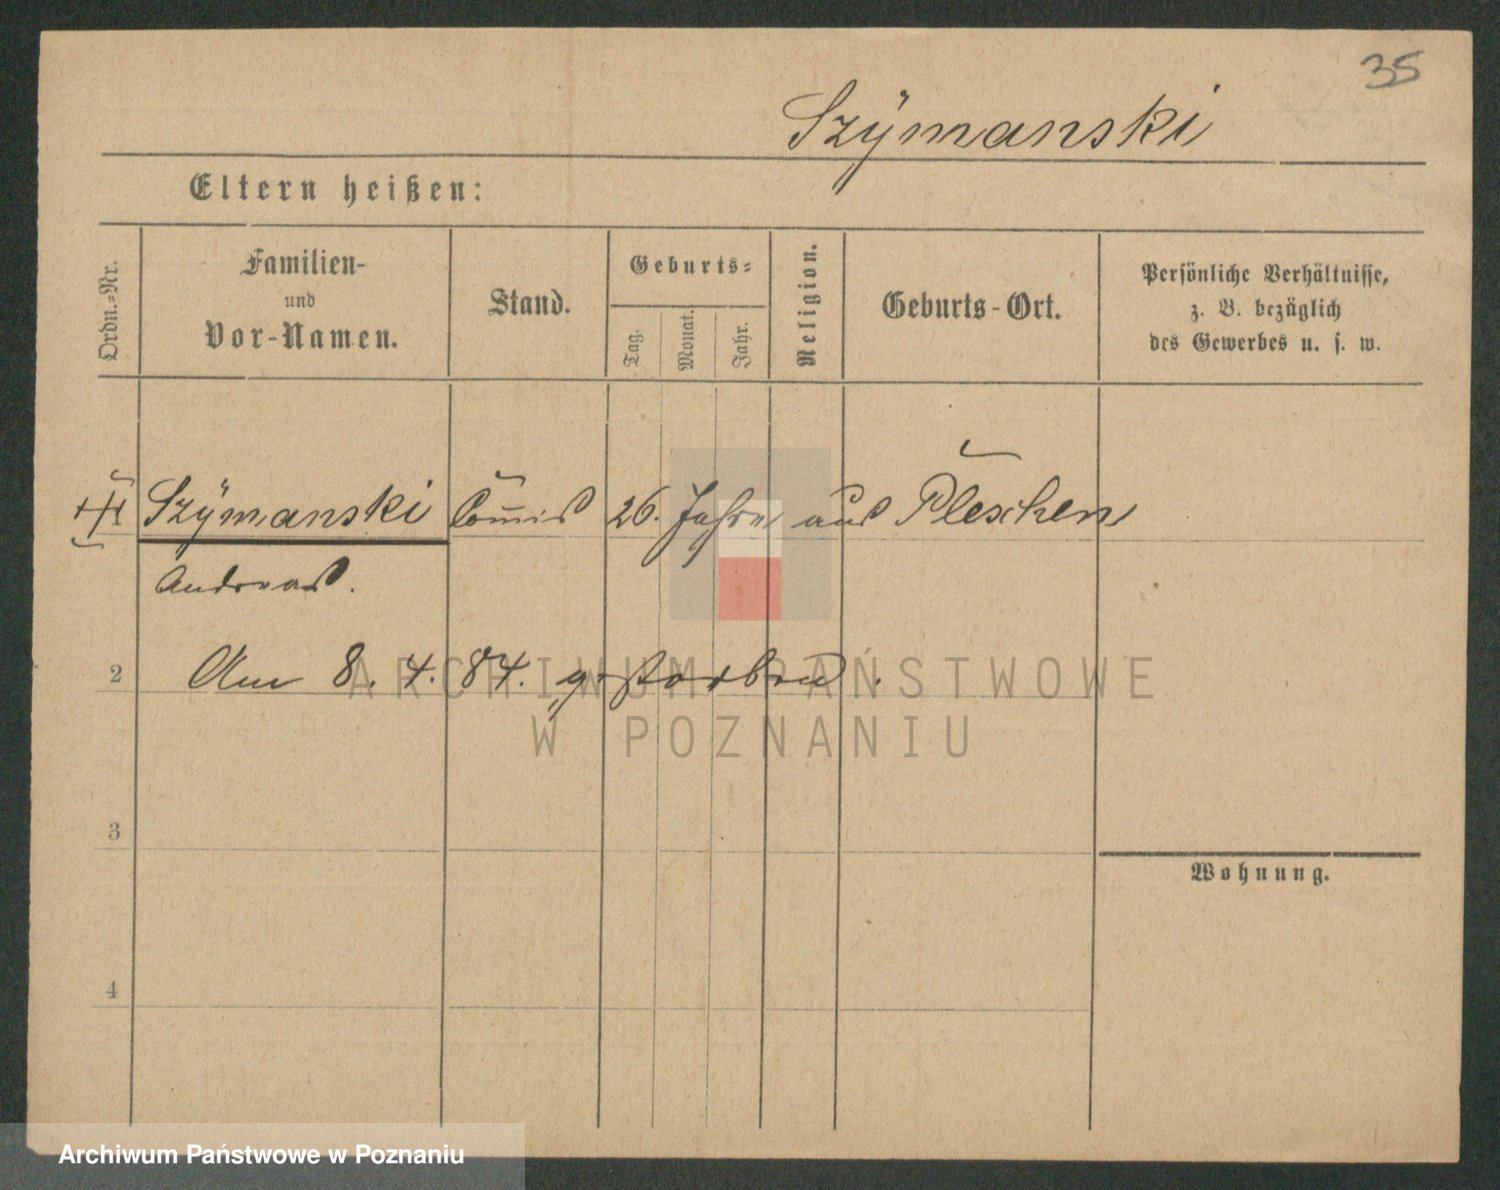 35
Szÿmanski
Eltern heißen:
Ordn.-Nr.
Familien-
und
Vor-Namen.
Stand.
Geburts-
Tag.
Monat.
Jahr.
Religion.
Geburts-Ort.
Persönliche Verhältnisse,
z. B. bezüglich
des Gewerbes u. s. w.
Szÿmanski Com̅is 26. Jahre aus Pleschen
Andreas.
2 Am 8. 4. 84. gestorben.
ARCHIWUM PAŃSTWOWE
W POZNANIU
3
Wohnung.
4
Archiwum Państwowe w Poznaniu